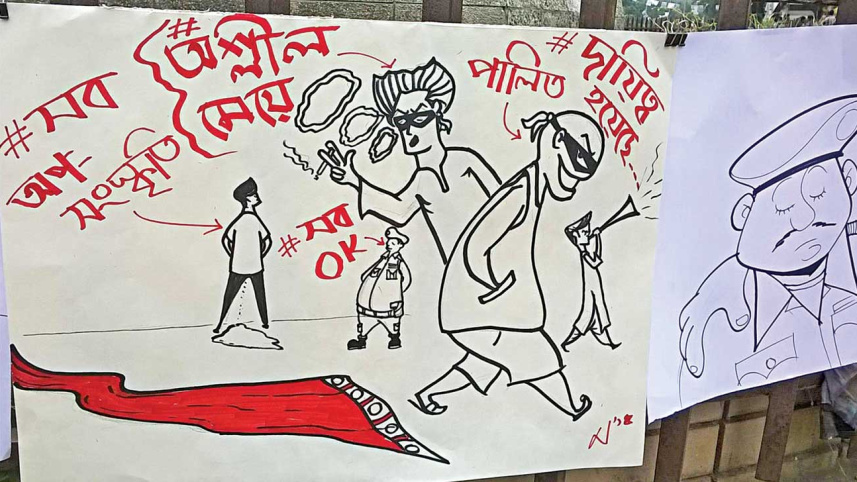 #সব
অপ-
সংস্কৃতি
#অশ্লীল
মেয়ে
#সব
OK
#দায়িত্ব
পালিত
হয়েছে...